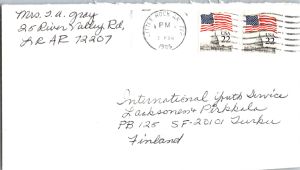 Mrs. T. A. Gray
25 River Valley Rd,
LR AR 72207
LITTLE ROCK, AR
PM
1985
USA 22
USA 22
International Youth Service
Laaksonen & Pirkkala
PB 125 SF-20101 Turku
Finland